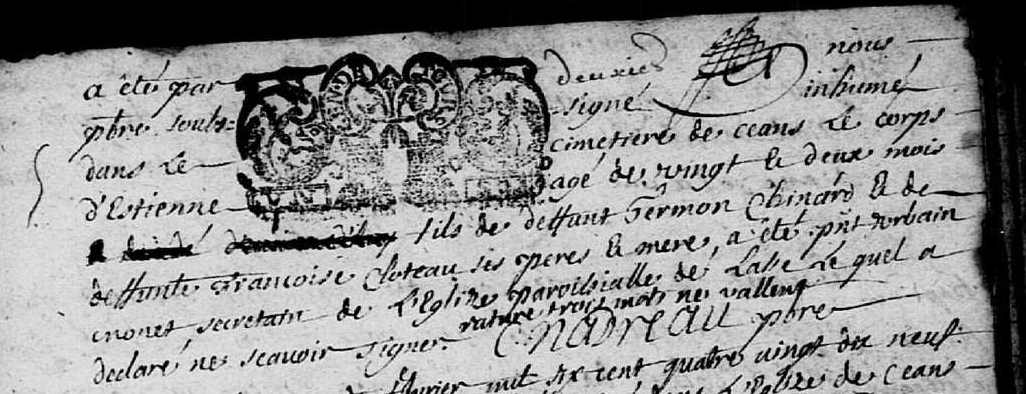 a été par nous
pbre soubs= signé inhumé
dans le cimetiere de ceans le corps
d'Estienne agé de vingt & deux mois
fils de deffunt Germon Chinard & de
deffunte Francoise Cloteau ses peres & mere, a été pnt Urbain
secretain de l'Eglize paroissialle de Lassé le quel a
declaré ne scavoir signer. rature trois mots ne vallent
Nadreau pbre
mil six cent quatre vingt dix neuf.
l'Eglize de ceans